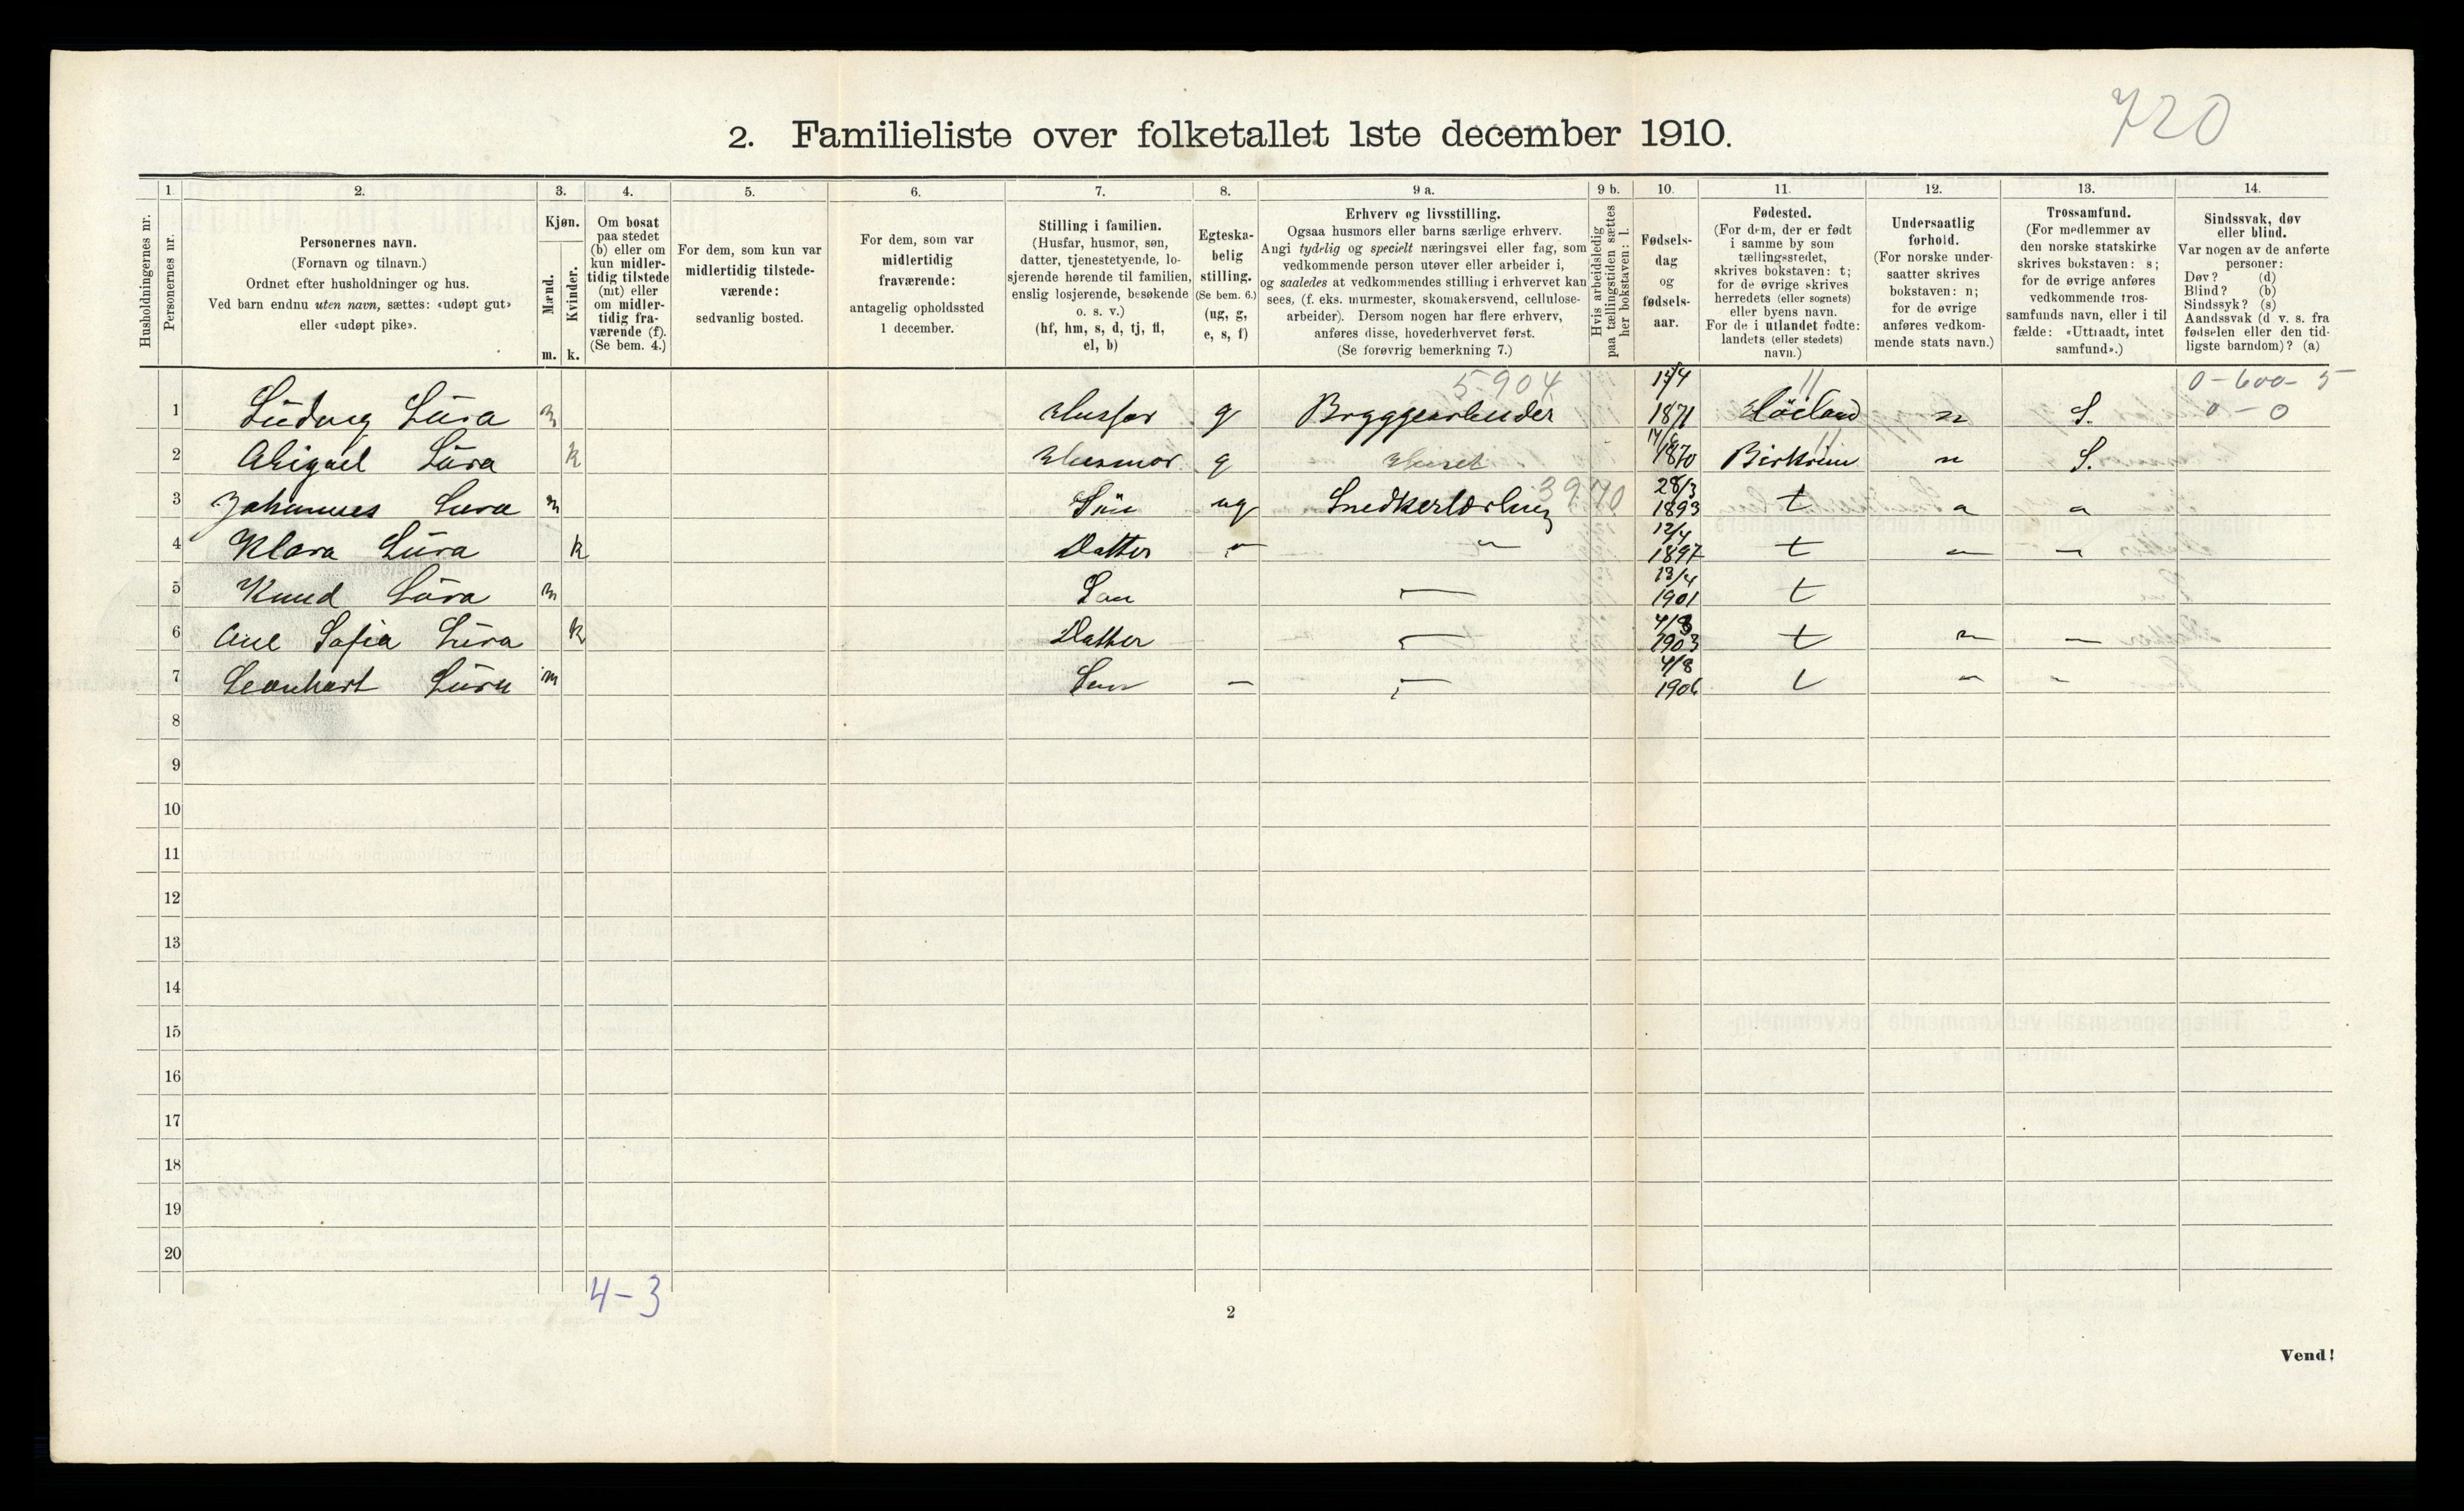 720
2. Familieliste over folketallet 1ste december 1910.
Husholdningernes nr.
1. Personernes nr.
2. Personernes navn. (Fornavn og tilnavn.) Ordnet efter husholdninger og hus. Ved barn endnu uten navn, sættes: «udøpt gut» eller «udøpt pike».
3. Kjøn. Mænd. m. Kvinder. k.
4. Om bosat paa stedet (b) eller om kun midlertidig tilstede (mt) eller om midlertidig fraværende (f). (Se bem. 4.)
5. For dem, som kun var midlertidig tilstedeværende: sedvanlig bosted.
6. For dem, som var midlertidig fraværende: antagelig opholdssted 1 december.
7. Stilling i familien. (Husfar, husmor, søn, datter, tjenestetyende, losjerende hørende til familien, enslig losjerende, besøkende o. s. v.) (hf, hm, s, d, tj, fl, el, b)
8. Egteskabelig stilling. (Se bem. 6.) (ug, g, e, s, f)
9 a. Erhverv og livsstilling. Ogsaa husmors eller barns særlige erhverv. Angi tydelig og specielt næringsvei eller fag, som vedkommende person utøver eller arbeider i, og saaledes at vedkommendes stilling i erhvervet kan sees, (f. eks. murmester, skomakersvend, cellulosearbeider). Dersom nogen har flere erhverv, anføres disse, hovederhvervet først. (Se forøvrig bemerkning 7.)
9 b. Hvis arbeidsledig paa tællingstiden sættes her bokstaven: l.
10. Fødselsdag og fødselsaar.
11. Fødested. (For dem, der er født i samme by som tællingsstedet, skrives bokstaven: t; for de øvrige skrives herredets (eller sognets) eller byens navn. For de i utlandet fødte: landets (eller stedets) navn.)
12. Undersaatlig forhold. (For norske undersaatter skrives bokstaven: n; for de øvrige anføres vedkommende stats navn.)
13. Trossamfund. (For medlemmer av den norske statskirke skrives bokstaven: s; for de øvrige anføres vedkommende trossamfunds navn, eller i tilfælde: «Uttraadt, intet samfund».)
14. Sindssvak, døv eller blind. Var nogen av de anførte personer: Døv? (d) Blind? (b) Sindssyk? (s) Aandssvak (d v. s. fra fødselen eller den tidligste barndom)? (a)
5904 0-600-5
1 Ludvig Lura m Husfar g Bryggearbeider 1871 Høiland n S. 0-0
2 Abigael Lura k Husmor g Huset 1870 Birkrem n S.
3 Johannes Lura m Sün ug Snedkerlærling 3970 28/3 1893 t
4 Klara Lura k Datter 12/4 1897 t
5 Knud Lura m Søn 13/4 1901 t
6 Ane Sofia Lura k Datter 4/8 1903 t
7 Leonhart Lura m Søn 4/8 1906 t
8
9
10
11
12
13
14
15
16
17
18
19
20
4-3
2
Vend!